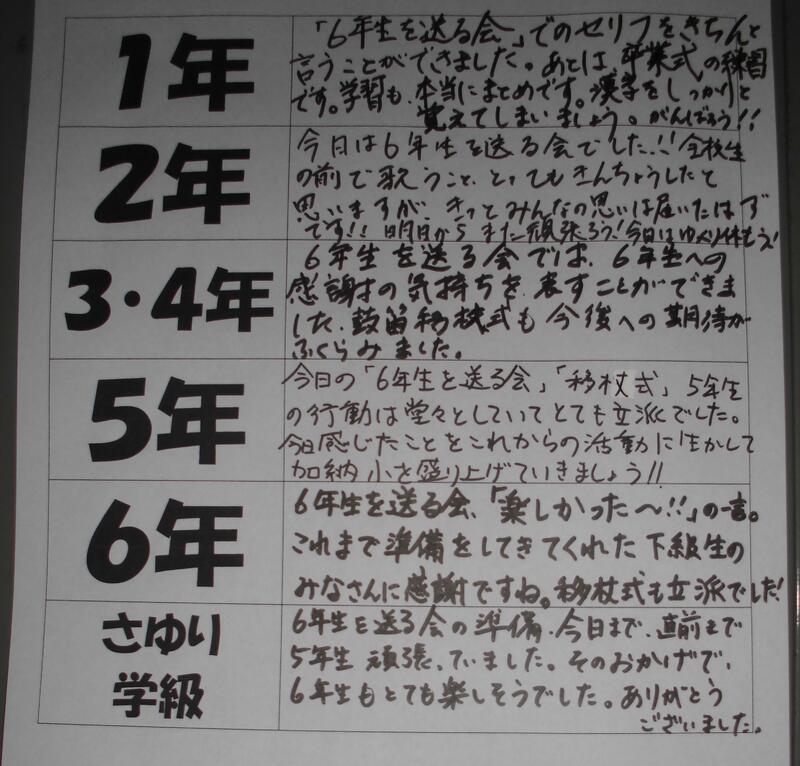 1年
「6年生を送る会」でのセリフをきちんと
言うことができました。あとは、卒業式の練習
です。学習も、本当にまとめです。漢字をしっかりと
覚えてしまいましょう。がんばろう!!
2年
今日は6年生を送る会でした!!全校生
の前で歌うこと、とってもきんちょうしたと
思いますが、きっとみんなの思いは届いたはず
です!!明日からまた頑張ろう!今日はゆっくり休もう!
3・4年
6年生を送る会では、6年生への
感謝の気持ちを表すことができま
した。鼓笛移杖式も今後への期待が
ふくらみました。
5年
今日の「6年生を送る会」「移杖式」5年生
の行動は堂々としていてとても立派でした。
今日感じたことをこれからの活動に生かして
加納小を盛り上げていきましょう!!
6年
6年生を送る会、「楽しかった〜!!」の一言。
これまで準備をしてきてくれた下級生の
みなさんに感謝ですね。移杖式も立派でした!
さゆり
学級
6年生を送る会の準備、今日まで、直前まで
5年生頑張っていました。そのおかげで、
6年生もとても楽しそうでした。ありがとう
ございました。